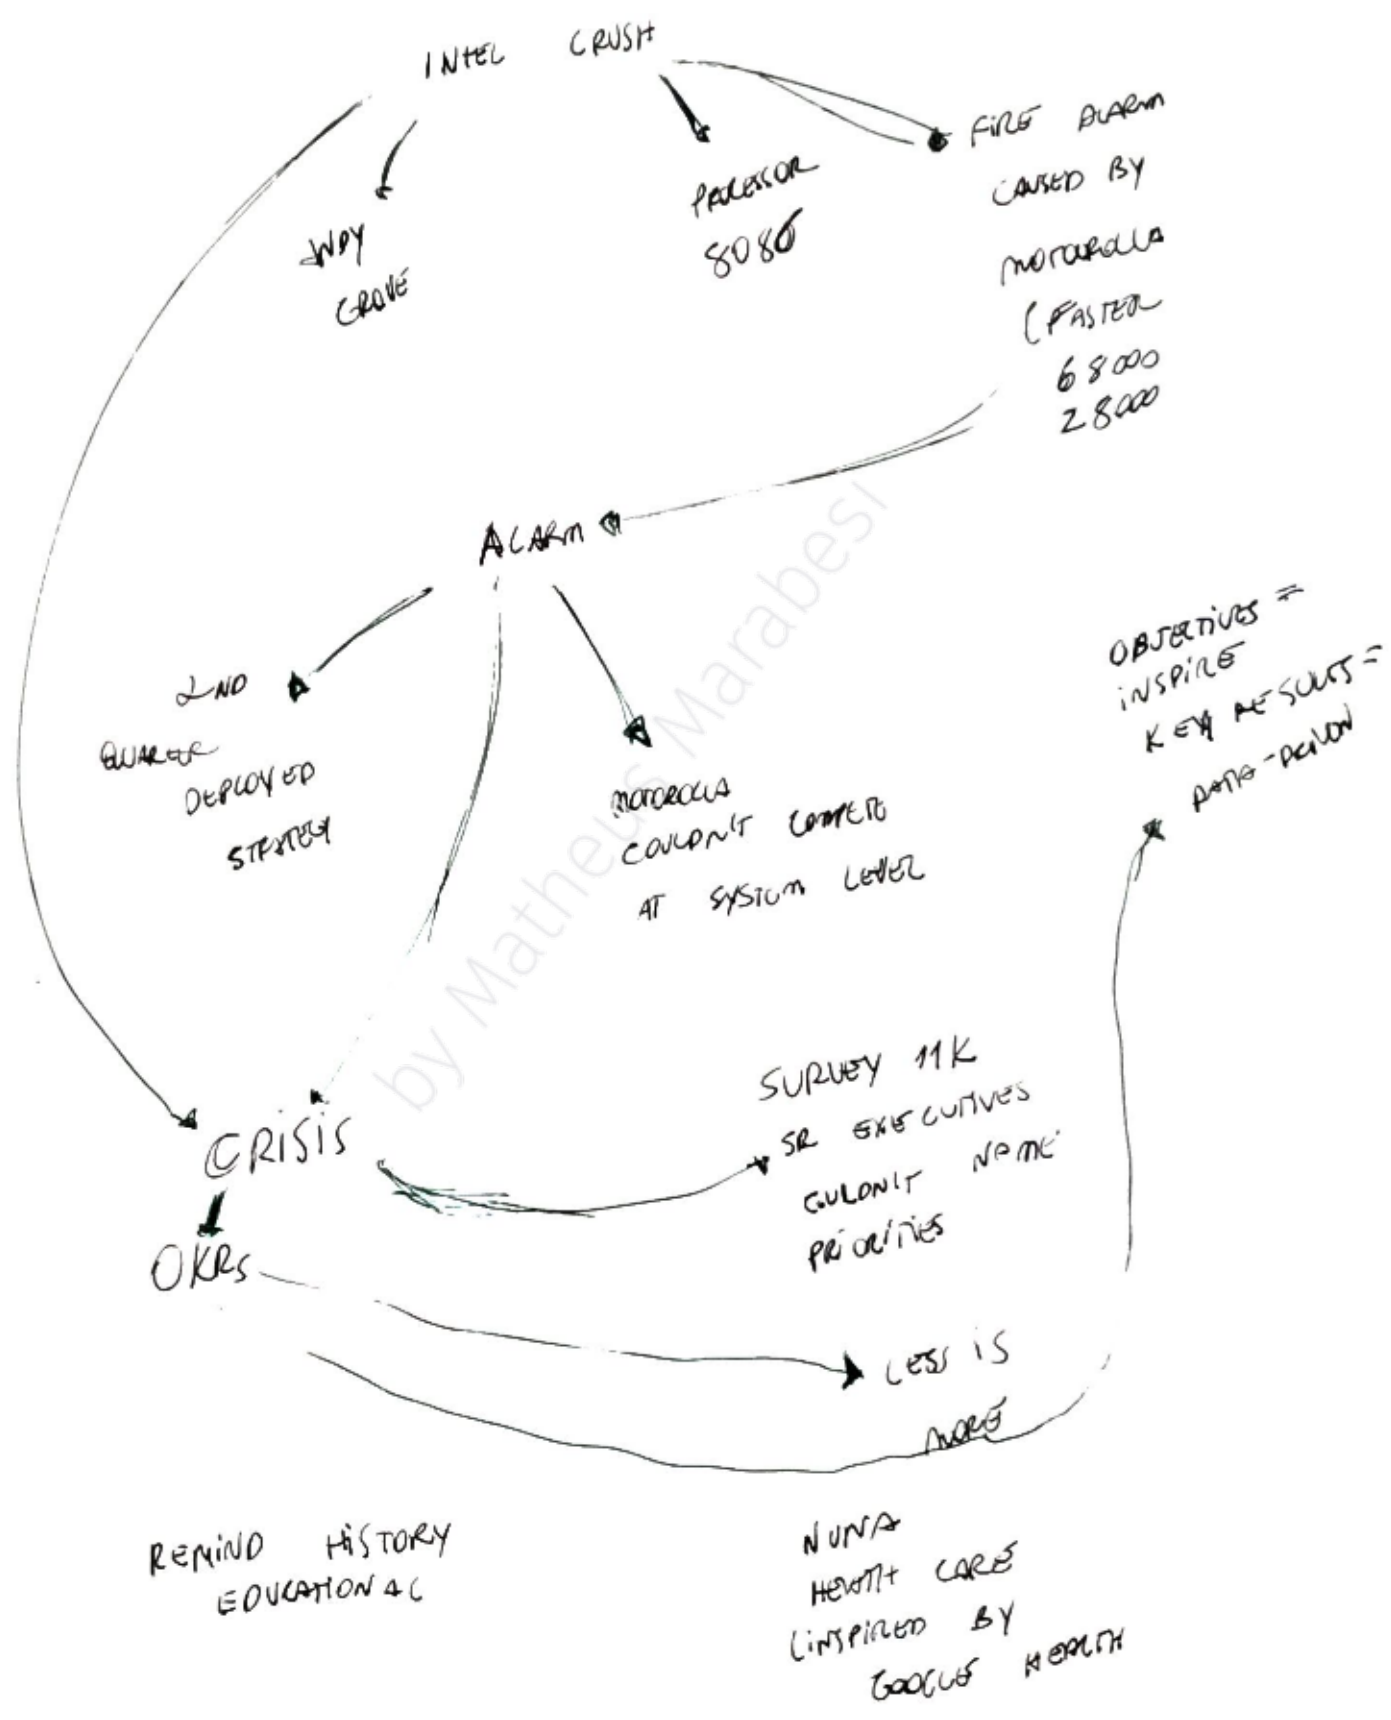 INTEL CRUSH
ANDY
GROVE
PROCESSOR
8086
FIRE ALARM
CAUSED BY
MOTOROLLA
(FASTER
68000
28000
ALARM
2ND
QUARTER
DEPLOYED
STRATEGY
MOTOROLLA
COULDN'T COMPETE
AT SYSTEM LEVEL
OBJECTIVES =
INSPIRE
KEY RESULTS =
DATA-DRIVEN
by Matheus Marabesi
CRISIS
SURVEY 11K
SR EXECUTIVES
COULDN'T NAME
PRIORITIES
OKRs
LESS IS
MORE
REMIND HISTORY
EDUCATIONAL
NUNA
HEALTH CARE
(INSPIRED BY
GOOGLE HEALTH